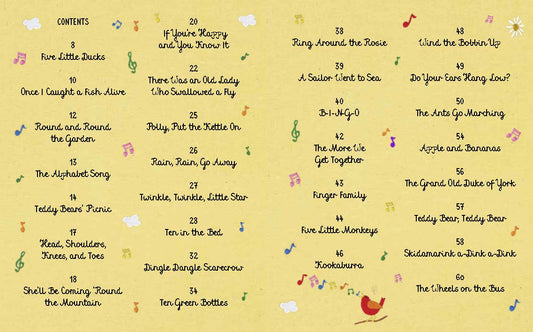 CONTENTS
8
Five Little Ducks
10
Once I Caught a Fish Alive
12
Round and Round
the Garden
13
The Alphabet Song
14
Teddy Bears' Picnic
17
Head, Shoulders,
Knees, and Toes
18
She'll Be Coming 'Round
the Mountain
20
If You're Happy
and You Know It
22
There Was an Old Lady
Who Swallowed a Fly
25
Polly, Put the Kettle On
26
Rain, Rain, Go Away
27
Twinkle, Twinkle, Little Star
28
Ten in the Bed
32
Dingle Dangle Scarecrow
34
Ten Green Bottles
38
Ring Around the Rosie
39
A Sailor Went to Sea
40
B-I-N-G-O
42
The More We
Get Together
43
Finger Family
44
Five Little Monkeys
46
Kookaburra
48
Wind the Bobbin Up
49
Do Your Ears Hang Low?
50
The Ants Go Marching
54
Apple and Bananas
56
The Grand Old Duke of York
57
Teddy Bear, Teddy Bear
58
Skidamarink a-Dink a-Dink
60
The Wheels on the Bus